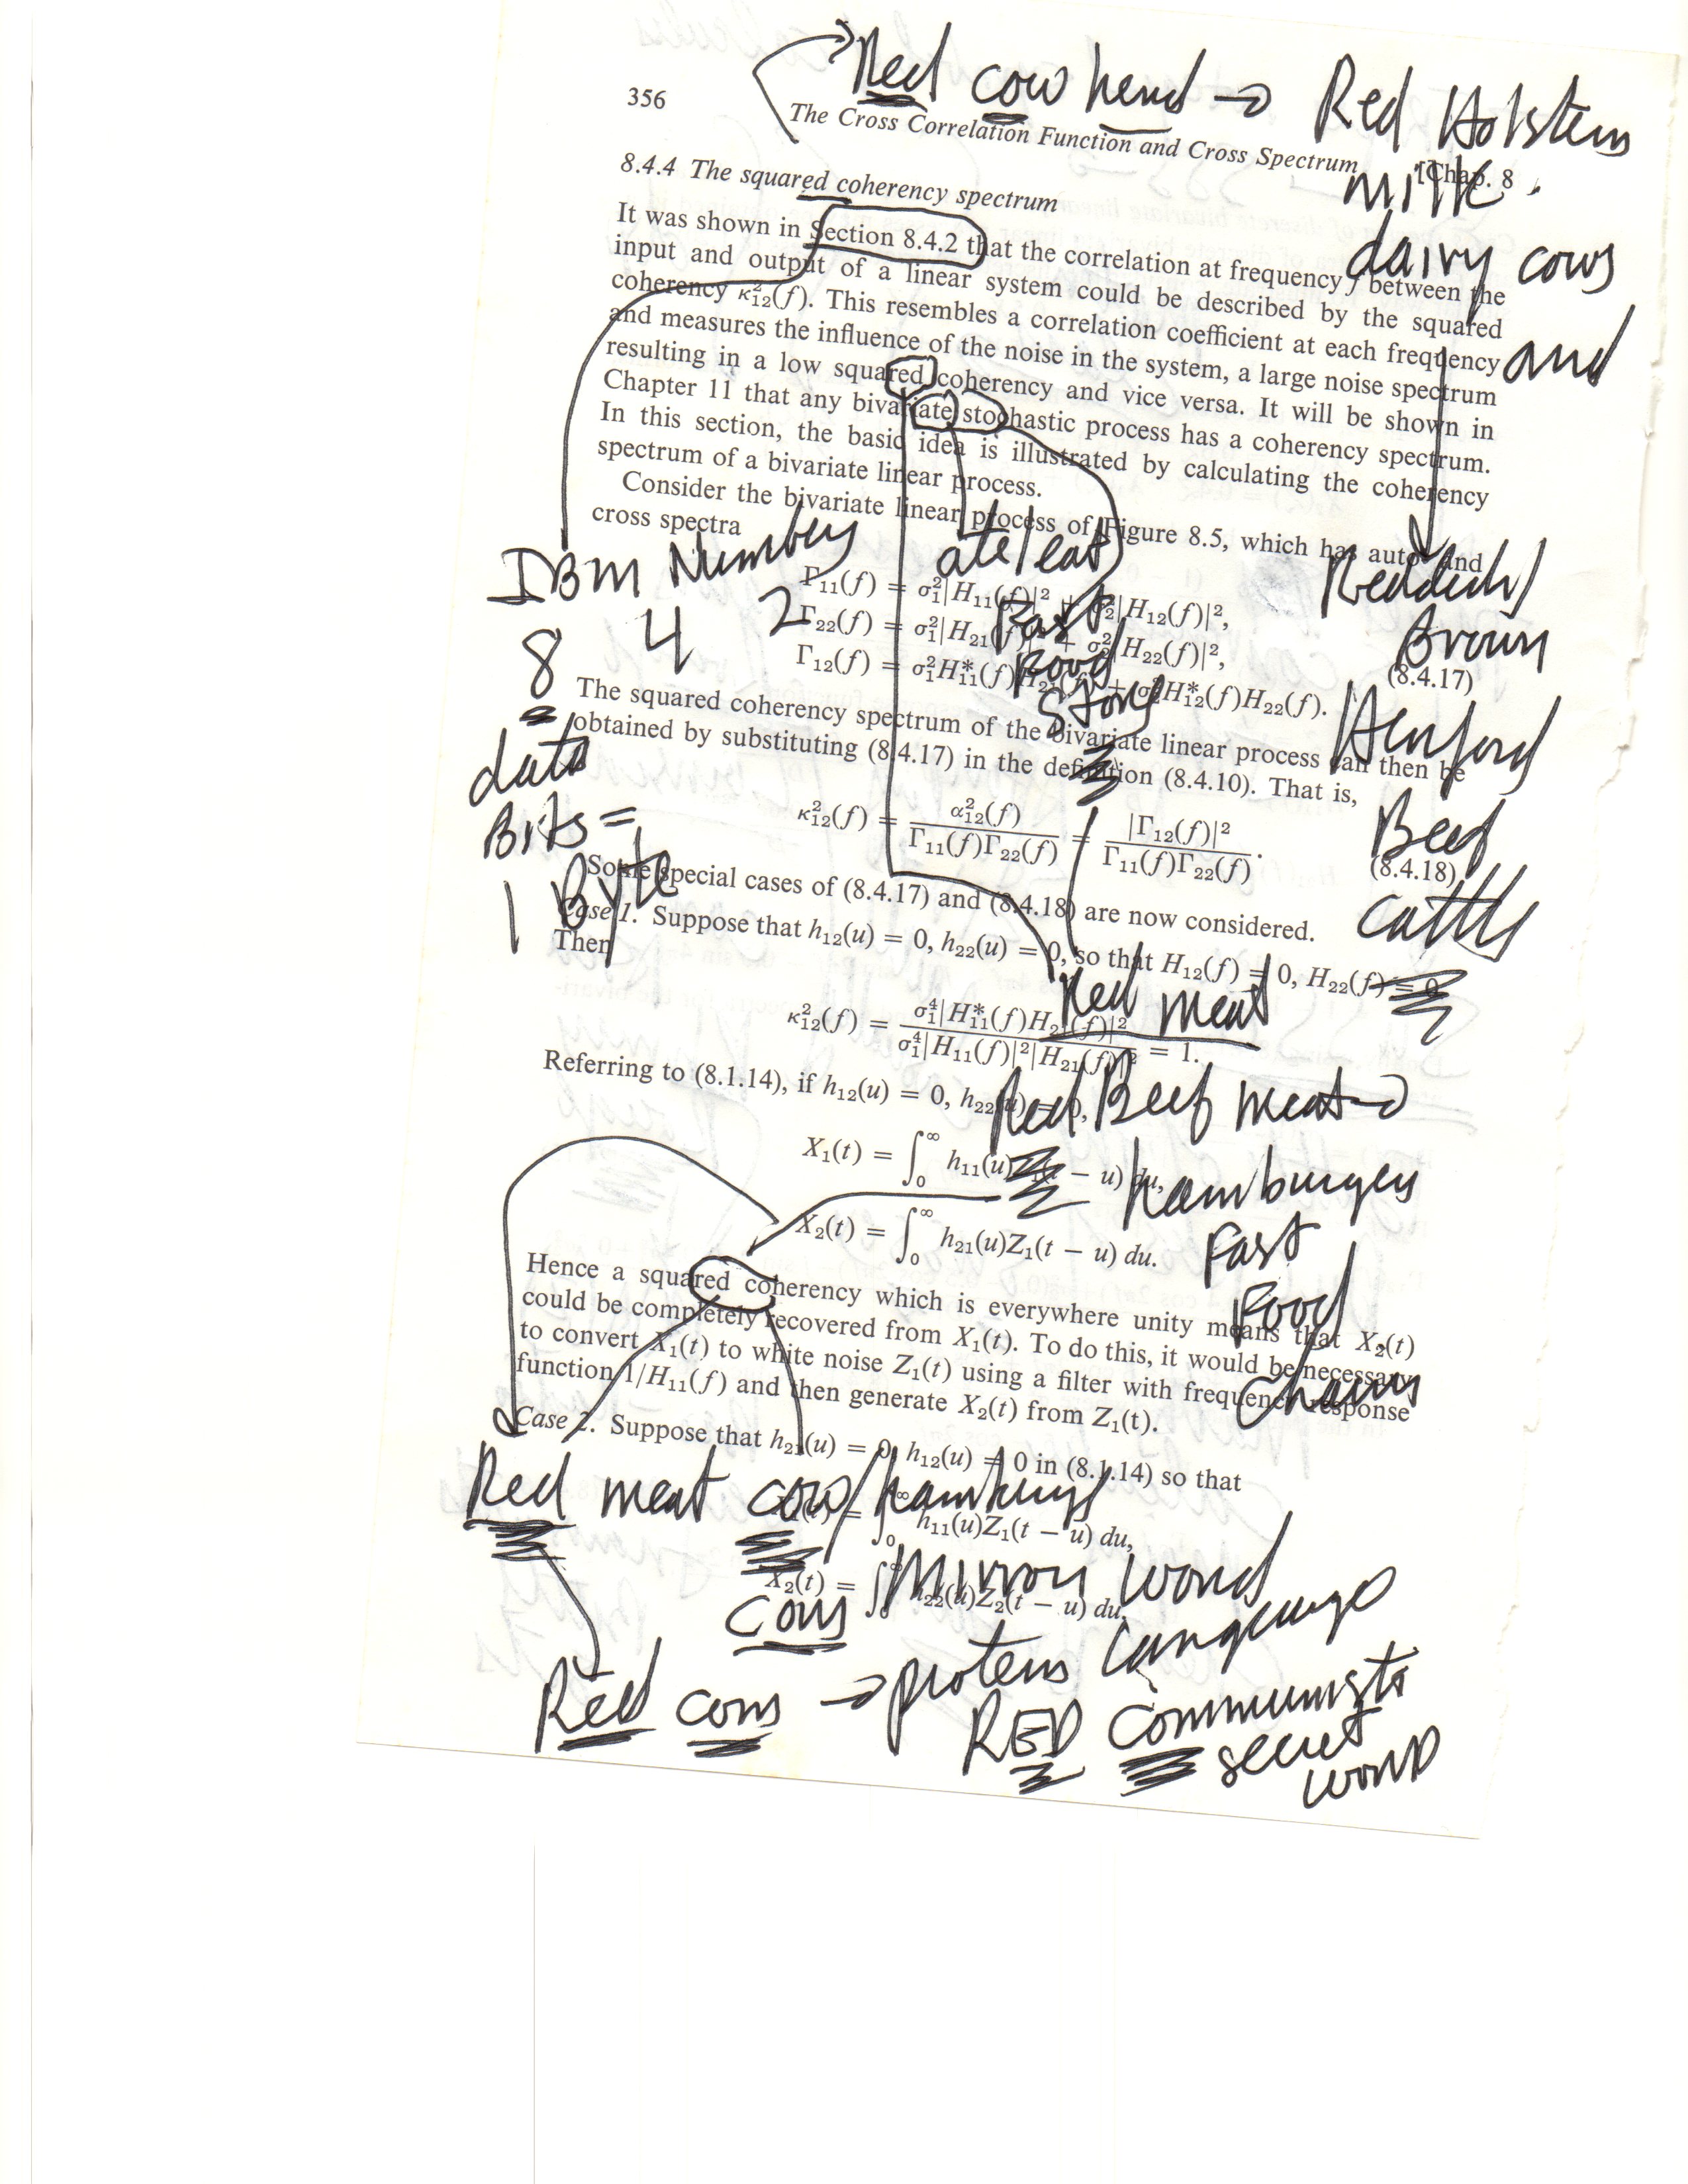 Red cow herd → Red Holstein
356
The Cross Correlation Function and Cross Spectrum
[Chap. 8
milk
dairy cows
and
Reddish/
Brown
Beef
Cattle
8.4.4 The squared coherency spectrum
It was shown in Section 8.4.2 that the correlation at frequency f between the
input and output of a linear system could be described by the squared
coherency κ²₁₂(f). This resembles a correlation coefficient at each frequency
and measures the influence of the noise in the system, a large noise spectrum
resulting in a low squared coherency and vice versa. It will be shown in
Chapter 11 that any bivariate stochastic process has a coherency spectrum.
In this section, the basic idea is illustrated by calculating the coherency
spectrum of a bivariate linear process.
Consider the bivariate linear process of Figure 8.5, which has auto and
cross spectra
IBM Number
8 4 2
data
Bits =
1 Byte
ate/eat
Fast
Food
Store
Γ₁₁(f) = σ²₁|H₁₁(f)|² + σ²₂|H₁₂(f)|²,
Γ₂₂(f) = σ²₁|H₂₁(f)|² + σ²₂|H₂₂(f)|²,
(8.4.17)
Γ₁₂(f) = σ²₁H*₁₁(f)H₂₁(f) + σ²₂H*₁₂(f)H₂₂(f).
The squared coherency spectrum of the bivariate linear process can then be
obtained by substituting (8.4.17) in the definition (8.4.10). That is,
κ²₁₂(f) = α²₁₂(f) / Γ₁₁(f)Γ₂₂(f) = |Γ₁₂(f)|² / Γ₁₁(f)Γ₂₂(f).
(8.4.18)
Some special cases of (8.4.17) and (8.4.18) are now considered.
Case 1. Suppose that h₁₂(u) = 0, h₂₂(u) = 0, so that H₁₂(f) = 0, H₂₂(f) = 0
Then
Red meat
κ²₁₂(f) = σ⁴₁|H*₁₁(f)H₂₁(f)|² / σ⁴₁|H₁₁(f)|²|H₂₁(f)|² = 1.
Referring to (8.1.14), if h₁₂(u) = 0, h₂₂(u) = 0,
Red Beef meat →
hamburgers
Fast
Food
Chains
X₁(t) = ∫₀^∞ h₁₁(u)Z₁(t − u) du,
X₂(t) = ∫₀^∞ h₂₁(u)Z₁(t − u) du.
Hence a squared coherency which is everywhere unity means that X₂(t)
could be completely recovered from X₁(t). To do this, it would be necessary
to convert X₁(t) to white noise Z₁(t) using a filter with frequency response
function 1/H₁₁(f) and then generate X₂(t) from Z₁(t).
Case 2. Suppose that h₂₁(u) = 0, h₁₂(u) = 0 in (8.1.14) so that
Red meat cow/hamburger
∫₀^∞ h₁₁(u)Z₁(t − u) du,
X₂(t) = ∫₀^∞ h₂₂(u)Z₂(t − u) du,
Mirror word
language
Red → protein
RED Communist
secret
word